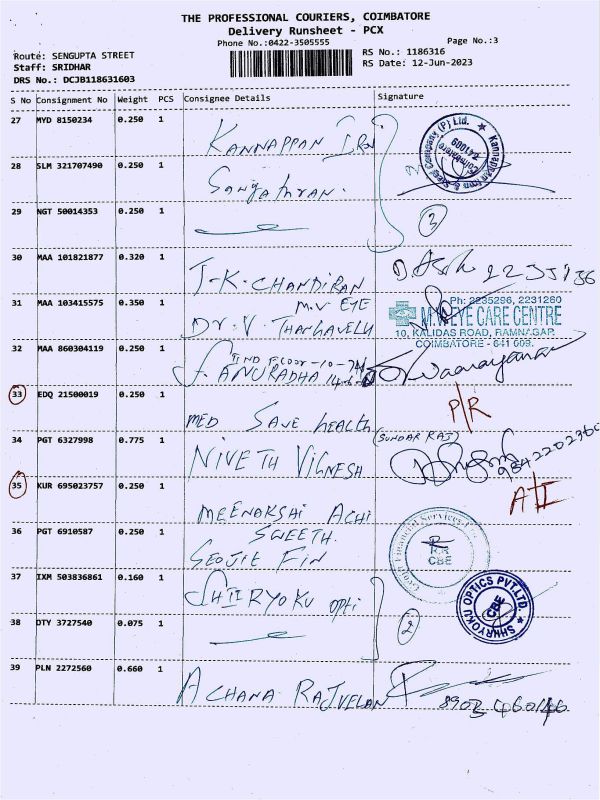 THE PROFESSIONAL COURIERS, COIMBATORE
Delivery Runsheet - PCX
Phone No.:0422-3505555 Page No.:3
Route: SENGUPTA STREET RS No.: 1186316
Staff: SRIDHAR RS Date: 12-Jun-2023
DRS No.: DCJB118631603
S No Consignment No Weight PCS Consignee Details Signature
27 MYD 8150234 0.250 1
KANNAPPAN IRON
Kannappan Iron & Steel Company (P) Ltd.
Coimbatore
641009
28 SLM 321707490 0.250 1
29 NGT 50014353 0.250 1
3
30 MAA 101821877 0.320 1
J-K. CHANDIRAN
31 MAA 103415575 0.350 1
M.V EYE
Dr. V. THANGAVELU
Ph: 2235296, 2231260
M.V. EYE CARE CENTRE
10, KALIDAS ROAD, RAMNAGAR,
COIMBATORE - 641 009.
32 MAA 860304119 0.250 1
IIND Floor-10-
S. ANURADHA
33 EDQ 21500019 0.250 1
MED Save health
P/R
34 PGT 6327998 0.775 1
NIVETH VIGNESH
(SUNDAR RAJ)
35 KUR 695023757 0.250 1
MEENAKSHI ACHI
36 PGT 6910587 0.250 1
SWEETH.
GEOJIT FIN
Financial Services
CBE
37 IXM 503836861 0.160 1
SHIIRYOKU opti
SHIIRYOKU OPTICS PVT.LTD.
CBE
38 OTY 3727540 0.075 1
2
39 PLN 2272560 0.660 1
ACHANA RAJVELAN